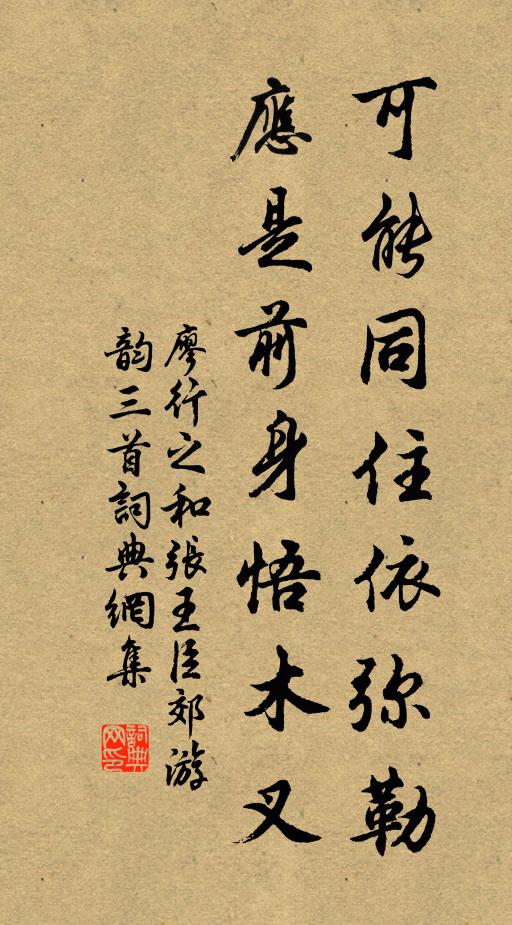 可能同住依弥勒
應是前身悟木叉
廖行之和張王臣郊游
韵三首詞典網集
詞典网印